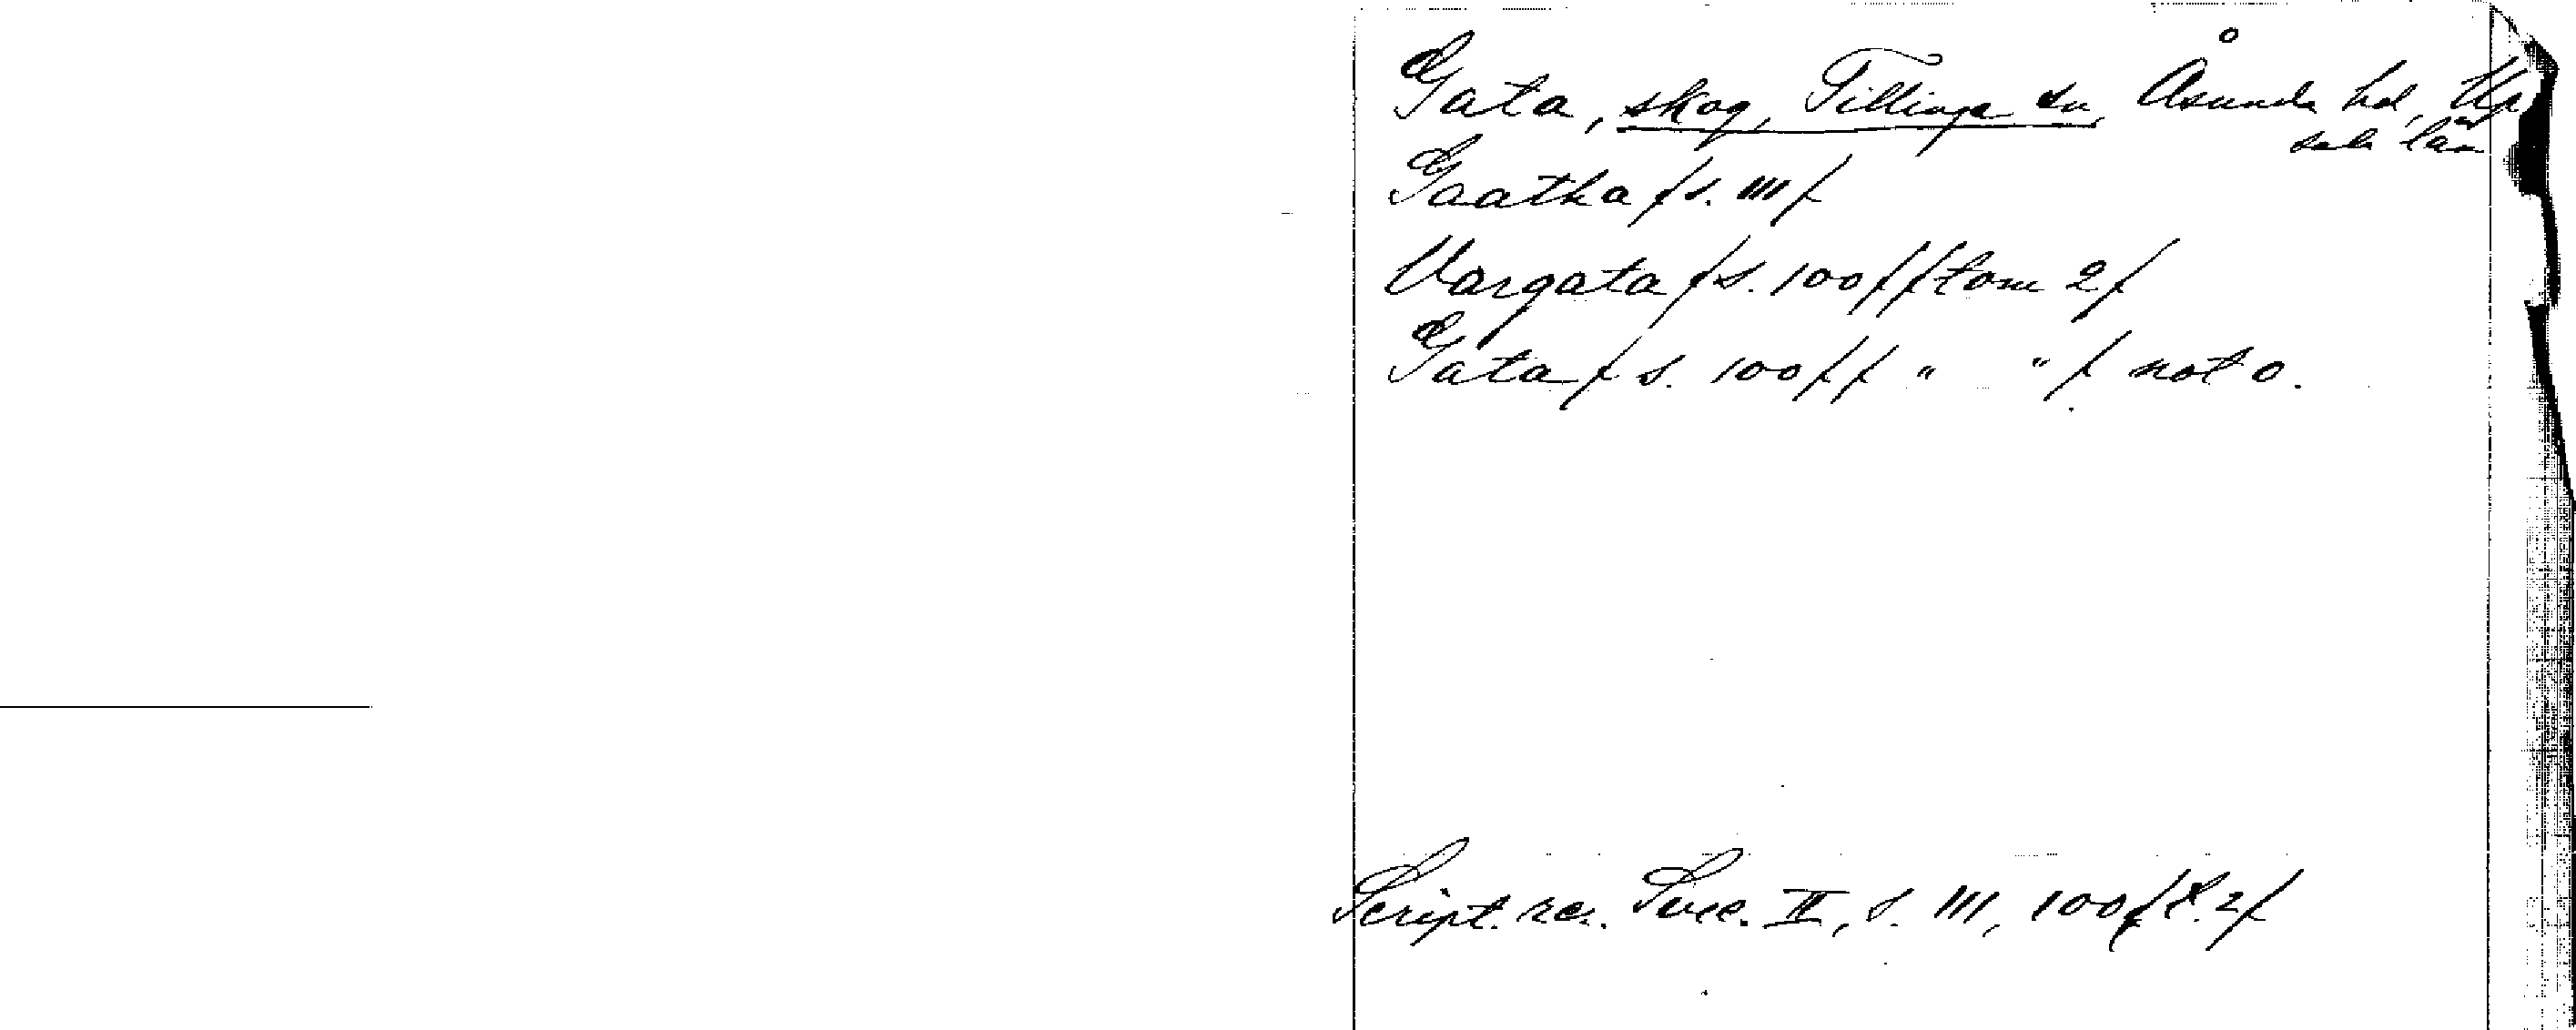 Gata, skog, Tillinge sn, Åsunda hd, Up
sala län
Gaatha /s. 111/
Vargata /s. 100/ /tom 2/
Gata / s. 100/ / " " / not o.
Script. rer. Svec. II, s. 111, 100 /t. 2/